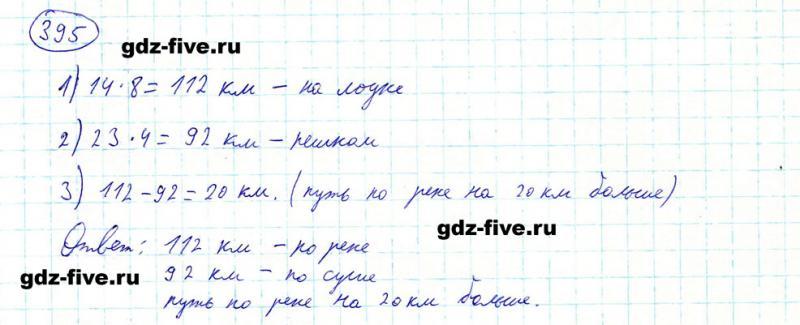 395
gdz-five.ru
1) 14·8 = 112 км – на лодке
2) 23·4 = 92 км – пешком
3) 112-92=20 км. (путь по реке на 20 км больше)
gdz-five.ru
Ответ: 112 км – по реке
gdz-five.ru
92 км – по суше
путь по реке на 20 км больше.